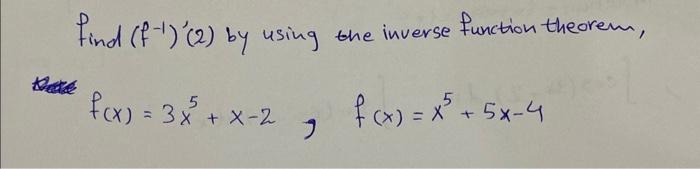 find (f⁻¹)'(2) by using the inverse function theorem,
f(x) = 3x⁵ + x-2 , f(x) = x⁵ + 5x-4